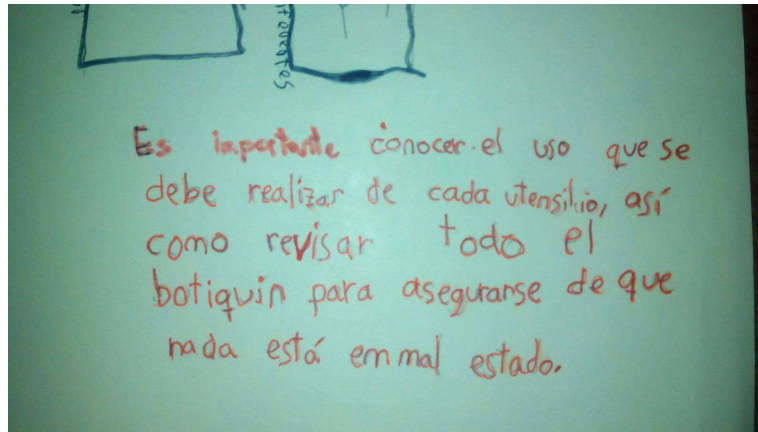 Es importante conocer el uso que se
debe realizar de cada utensilio, así
como revisar todo el
botiquin para asegurarse de que
nada está em mal estado.